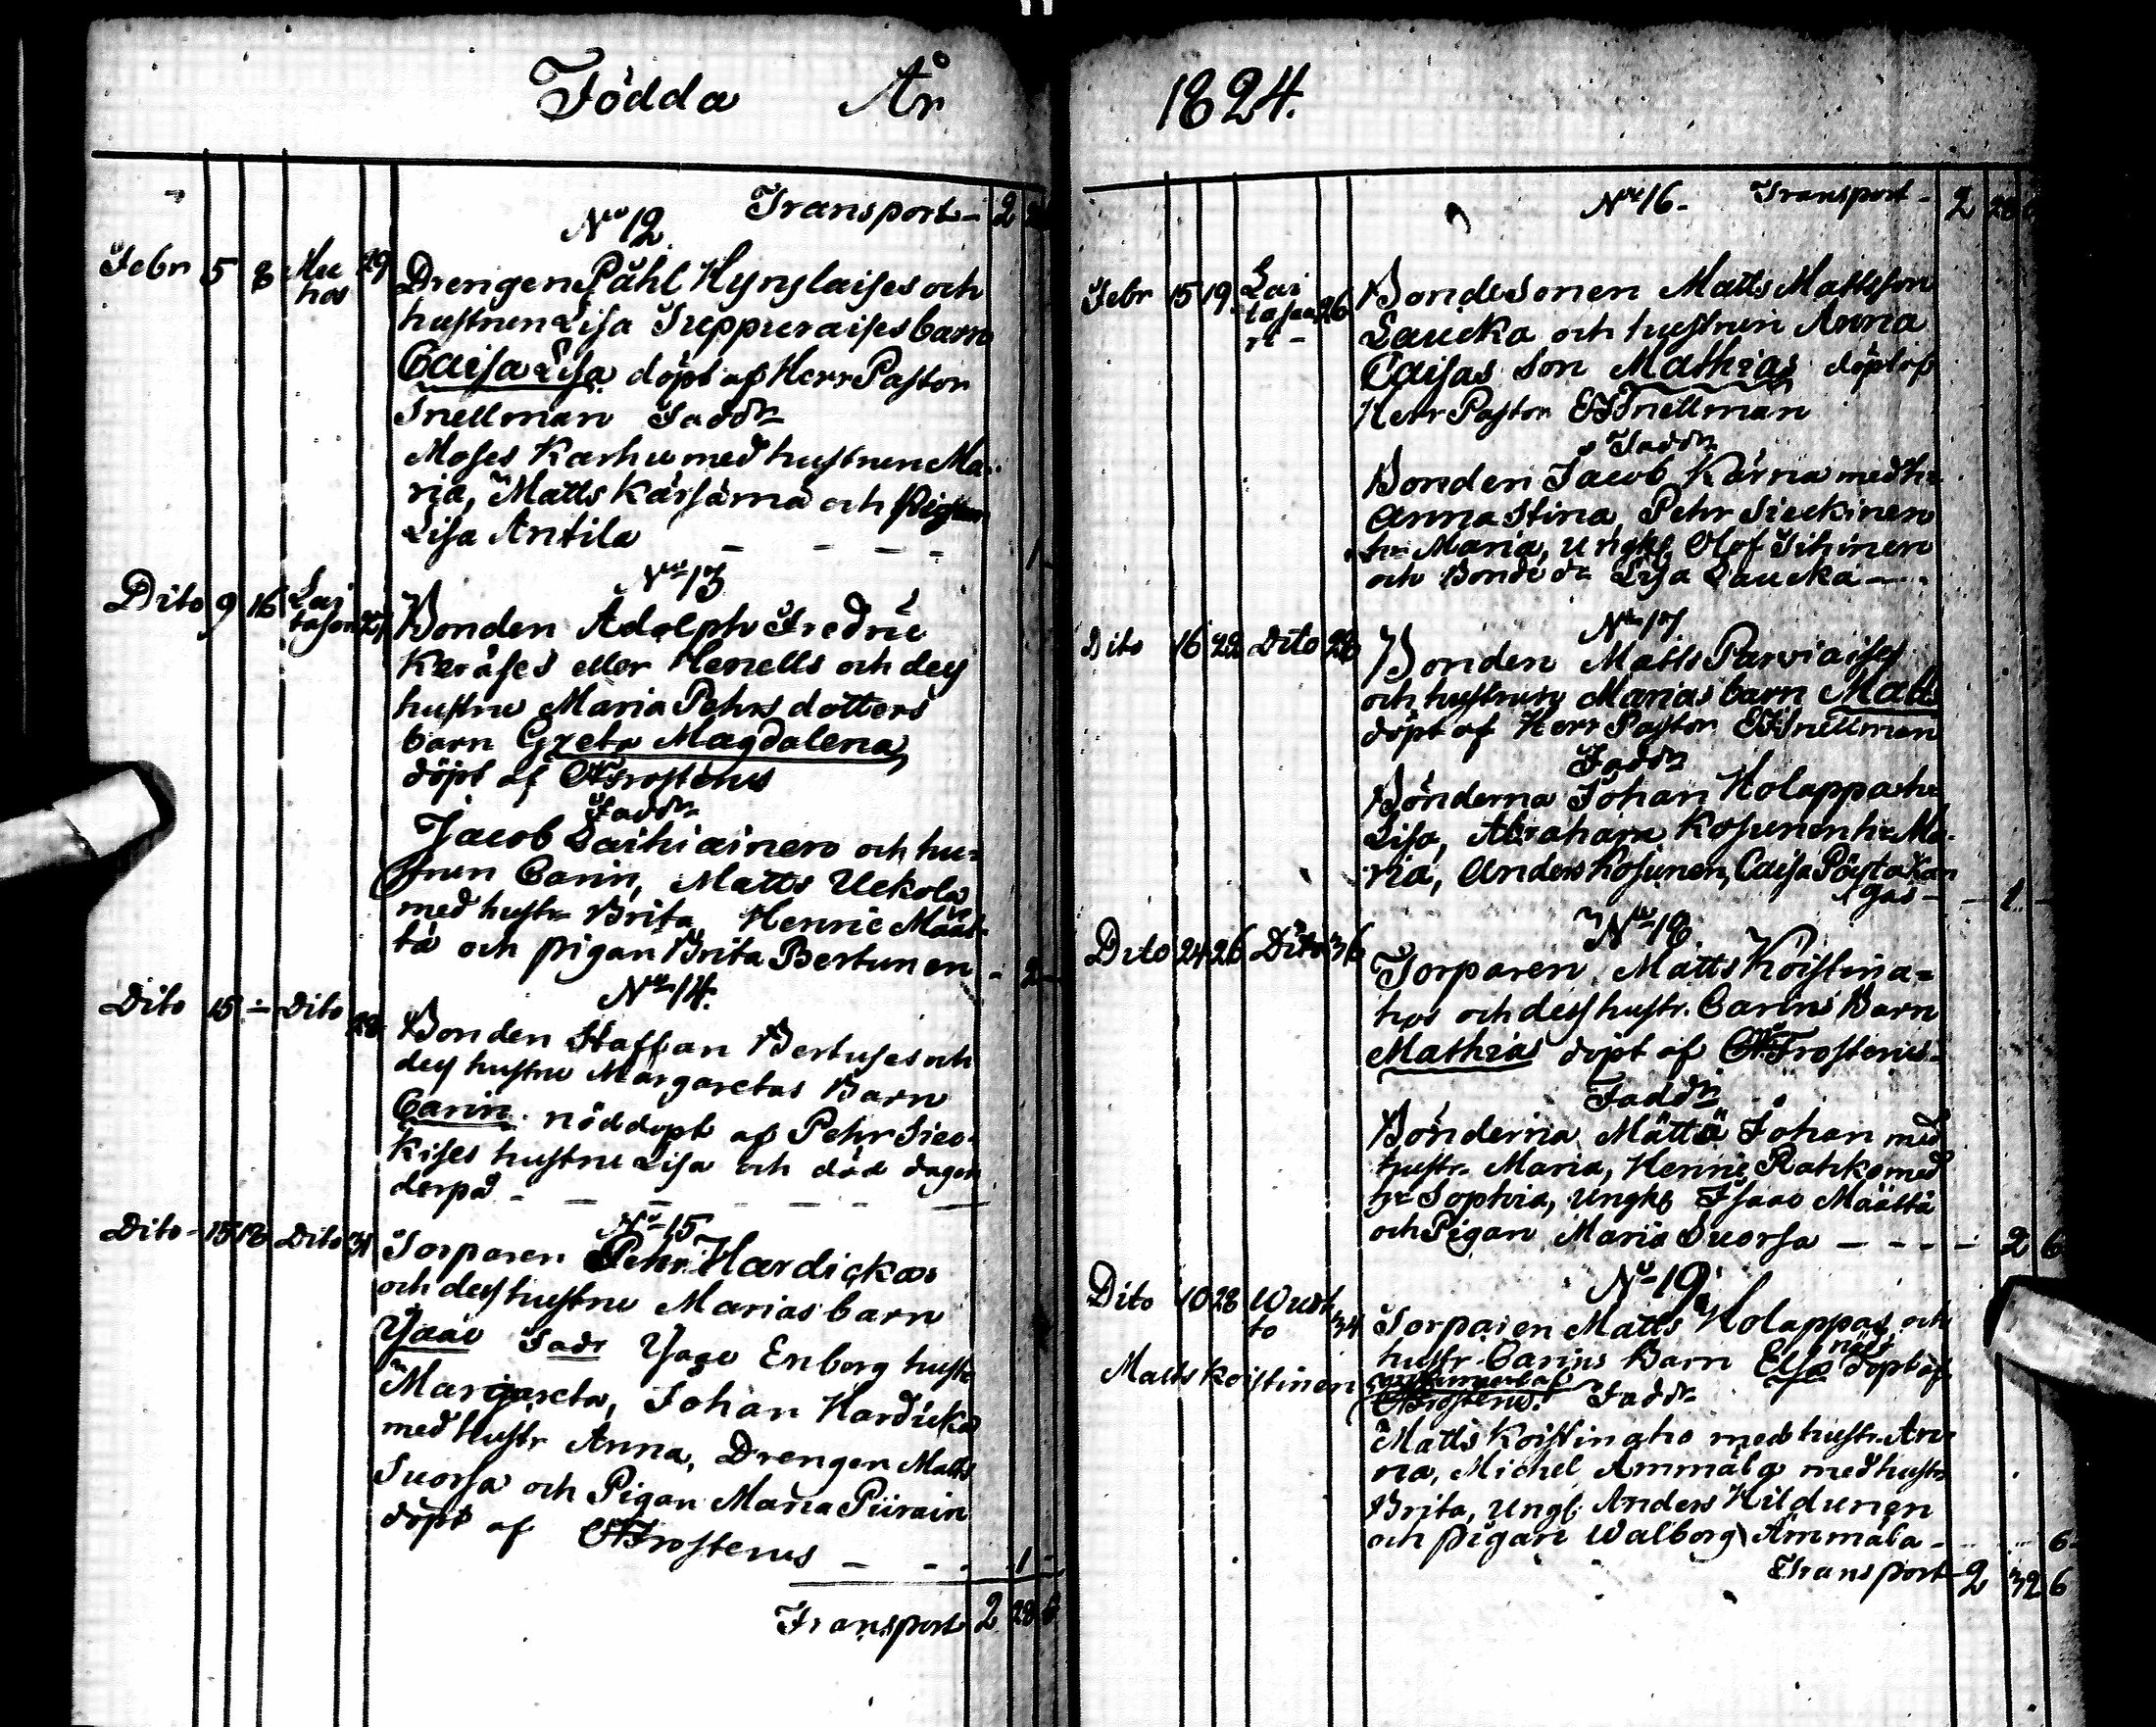 Födda År
Transport - 2
No 12
Febr 5 8 Mu
hos 29 Drengen Påhl Hyrylaises och
hustrun Lisa Seppuraises barn
Caisa Lisa döpt af Herr Pastor
Snellman Faddr
Moses Karhu med hustrun Ma-
ria, Matts Kärsämä och Pigan
Lisa Antila - - - - 1
No 13
Dito 9 16 Lai
tasari Bonden Adolph Fredric
Keräses eller Henells och dess
hustru Maria Pehrs dotters
barn Greta Magdalena
döpt af Frosterus
Faddr
Jacob Laihiainen och hu-
strun Carin, Matts Uckola
med hustr Brita Henric Määt-
tä och pigan Brita Bertunen - 2 -
No 14.
Dito 15 - Dito 28 Bonden Staffan Bertuses och
dess hustru Margaretas Barn
Carin nöddöpt af Pehr Siec-
kises hustru Lisa och död dagen
derpå - - - - - - -
No 15
Dito - 15 18 Dito 31 Torparen Pehr Hardickas
och dess hustru Marias barn
Isaac Fadr Isac Enborg hustr
Margareta, Johan Hardicka
med hustr Anna, Drengen Matts
Suorsa och Pigan Maria Piirain
döpt af Frosterus - - - 1 -
Transport 2 28 6
1824.
No 16 - Transport - 2 28
Febr 15 19 Lai
tasaa
ri - 26 Bonde Sonen Matts Mattsson
Laucka och hustrun Anna
Caisas Son Mathias döpt af
Herr Pastor Snellman
Faddr
Bonden Jacob Kärnä med hr
Anna Stina, Pehr Sieckinen
hr Maria, Ungkl Olof Tihinen
och Bonde dr Lisa Laucka - - -
No 17
Dito 16 22 Dito 28 Bonden Matts Parviaises
och hustrun Marias barn Matts
döpt af Herr Pastor Snellman
Faddr
Bönderna Johan Holappa hr
Lisa, Abraham Kosunen hr Ma-
ria, Anders Kosunen, Caisa Pöytäkan
gas - - 1 -
No 18
Dito 24 26 Dito 36 Torparen Matts Koistina-
hos och dess hustr. Carins Barn
Mathias döpt af Frosterus -
Faddr
Bönderna Mättä Johan med
hustr. Maria, Henric Ratiko med
hr Sophia, Ungkl Isaac Määttä
och Pigan Maria Suorsa - - - - 2 6
No 19
Dito 10 28 Wuot
to 34 Torparen Matts Holappas och
hustr. Carins Barn Elsa nöd
döpt af
Matts Koistinen
Frosterus. Faddr
Matts Koistinaho med hustr. An-
na, Michel Ämmälä med hustr
Brita, Ungl. Anders Hildunen
och pigan Walborg Ämmälä - 6 -
Transport - 2 32 6